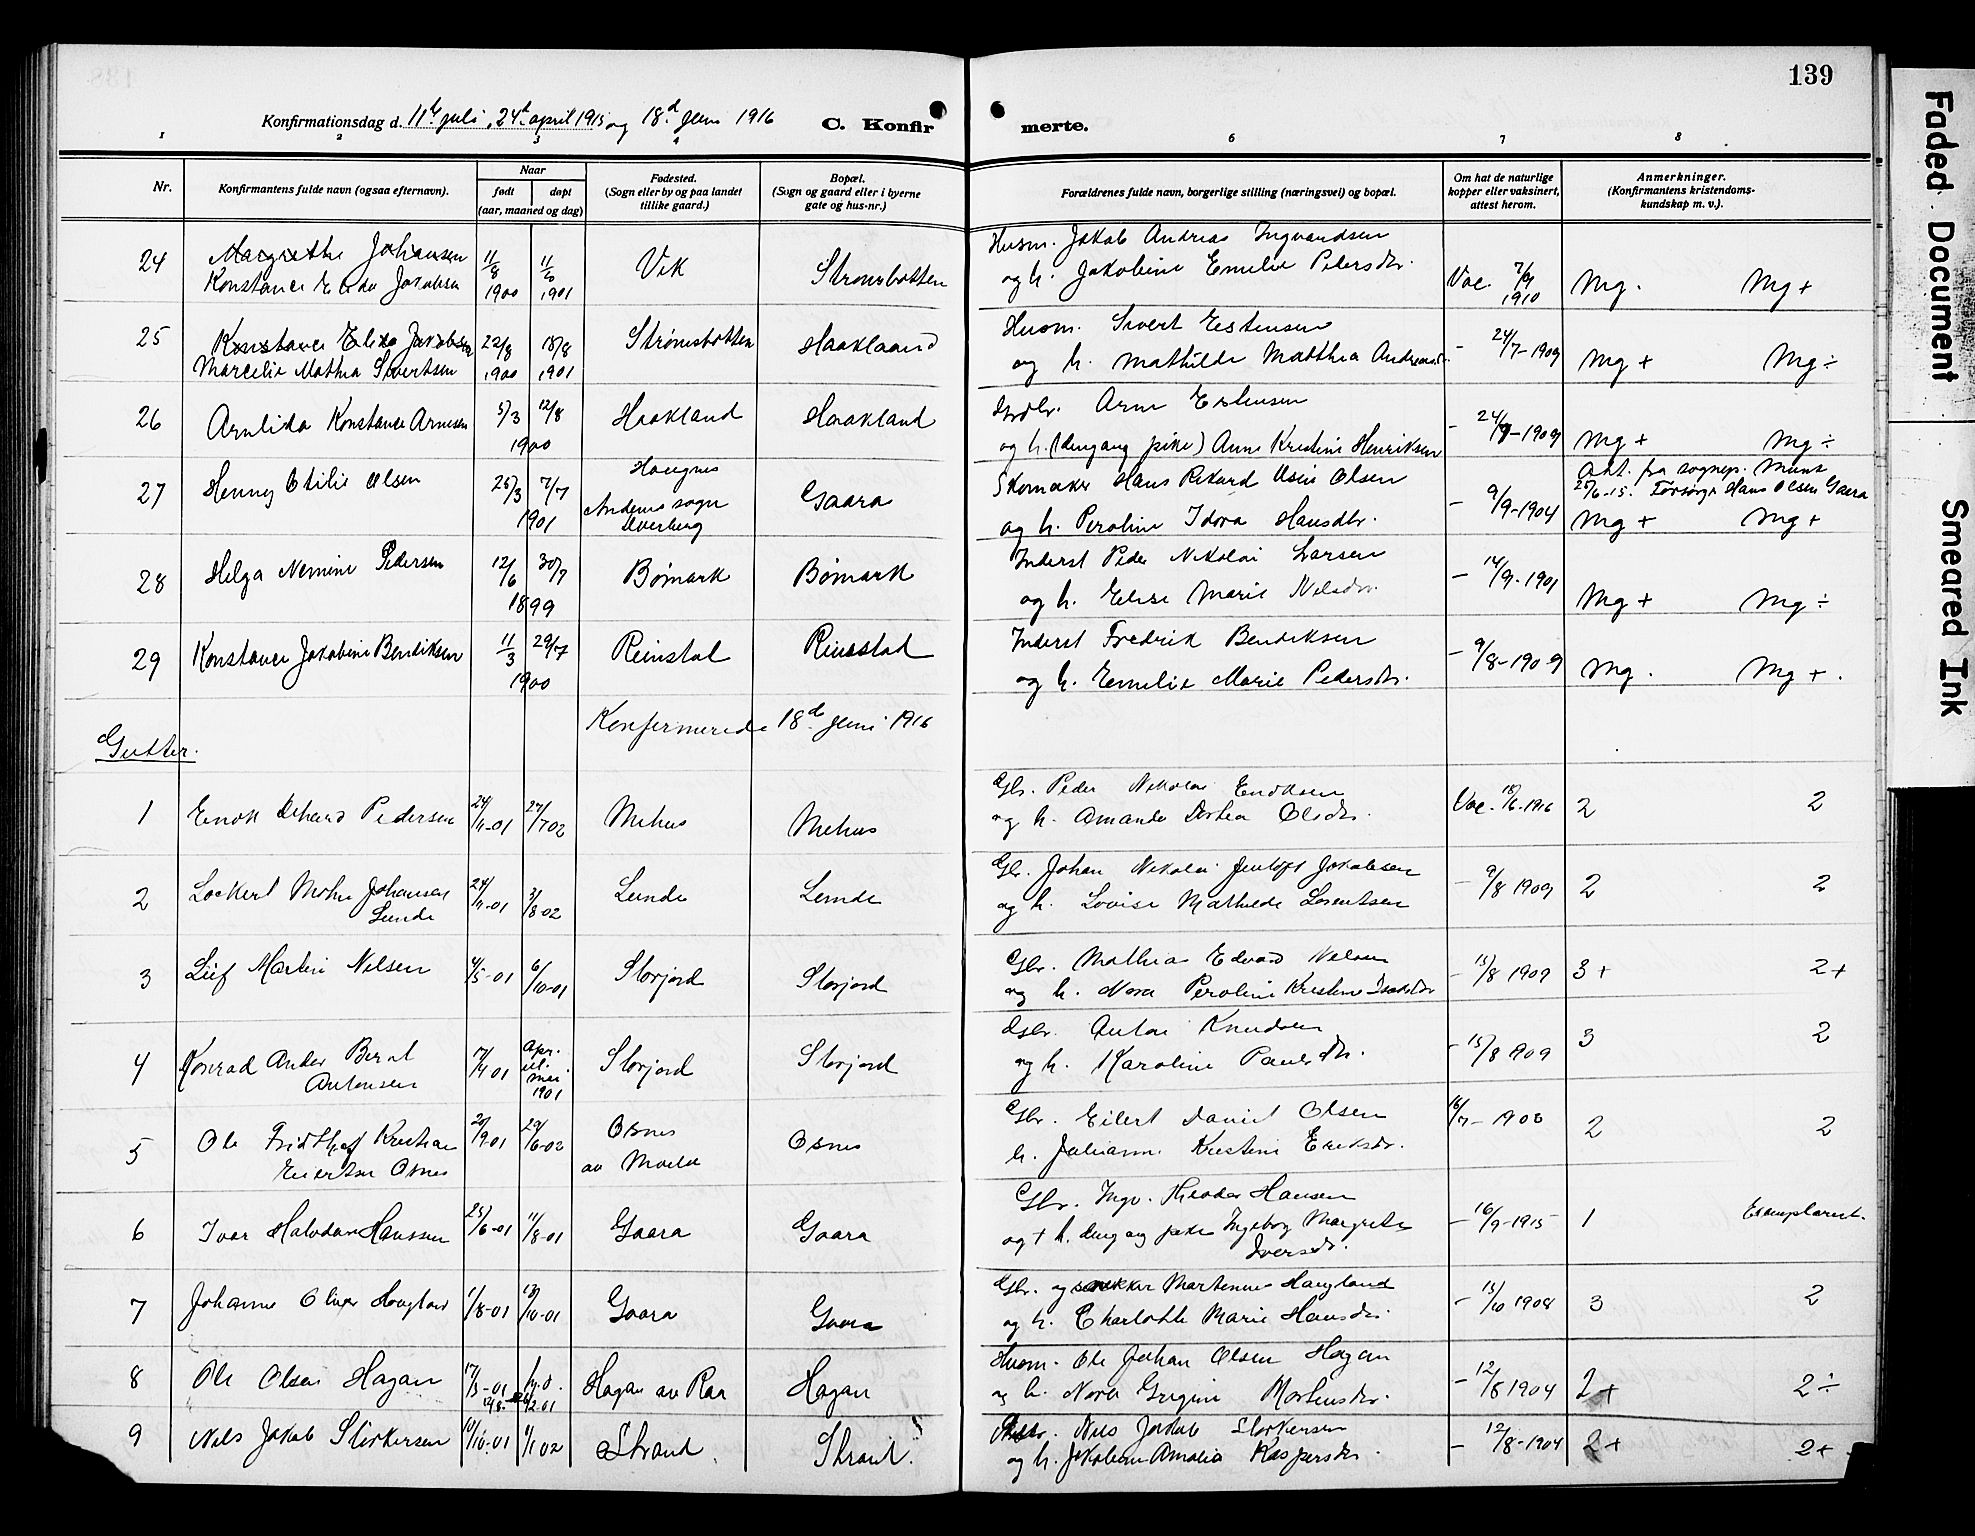 139
Konfirmationsdag d. 11te juli, 24d april 1915 og 18d juni 1916
C. Konfirmerte.
1 2 3 4 6 7 8
Nr.
Konfirmantens fulde navn (ogsaa efternavn).
Naar
født døpt
(aar, maaned og dag)
Fødested.
(Sogn eller by og paa landet
tillike gaard.)
Bopæl.
(Sogn og gaard eller i byerne
gate og hus-nr.)
Forældrenes fulde navn, borgerlige stilling (næringsvei) og bopæl.
Om hat de naturlige
kopper eller vaksinert,
attest herom.
Anmerkninger.
(Konfirmantens kristendoms-
kundskap m. v.).
24 Margrethe Johansen
Konstance Elida Jakobsen 11/8 1900 1901 Vik Strømsbotten
Husm. Jakob Andreas Ingvardsen
og h. Jakobine Emelie Petersdtr. Vac. 1910 Mg. Mg +
25 Konstance Elida Jakobsen
Marcelie Mathea Sivertsen 22/8 1900 18/8 1901 Strømsbotten Haakland
Husm. Sivert Estensen
og h. Mathilde Matthea Andreasdtr. - 24/7-1909 Mg + Mg ÷
26 Arnlida Konstance Arnesen 5/3 12/8 1900 Haakland Haakland
Arne Estensen
og h. (dengang pike) Anne Kristine Henriksen - 1909 Mg + Mg ÷
27 Henny Otilie Olsen 25/3 7/7 1901
Haugnes
Andenes sogn
Gaara
Skomaker Hans Rikard Olsen
og h. Peroline Idora Hansdtr. - 9/9-1904
Att. fra sognepr. Munz
25/6-15. Forsørger Hans Olsen Gaara
Mg + Mg +
28 Helga Nemine Pedersen 12/6 30/7 1899 Bømark Bømark
Inderst Peder Nikolai Larsen
og h. Elise Marie Nilsdtr. - 14/9-1901 Mg + Mg ÷
29 Konstance Jakobine Bendiksen 11/3 29/7 1900 Reinstad Reinstad
Inderst Fredrik Bendiksen
og h. Emelie Marie Pedersdtr. - 9/8-1909 Mg. Mg +.
Konfirmerede 18de juni 1916
Gutter.
1 Enok Pedersen 24/11-01 27/7 02 Mehus Mehus
Gbr. Peder Nikolai Enoksen
og h. Amanda Dortea Olsdtr. Vac. 1916 2 2
2 Lockert Johansen
Lunde 24/11-01 3/8-02 Lunde Lunde
Gbr. Johan Nikolai Jentoft Jakobsen
og h. Lovise Mathilde Lorentsen - 9/8 1909 2 2
3 Leif Martin Nilsen 4/5-01 6/10-01 Storjord Storjord
Gbr. Mathias Edvard Nilsen
og h. Nora Peroline Kristine Isaksdtr - 15/8 1909 3+ 2+
4 Konrad Ander Bernt
Antonsen 01 Apr.
mai
1901 Storjord Storjord
Gbr. Anton Knudsen
og h. Karoline Paulsdtr. - 15/8 1909 3 2
5 Ole Fridthjof Kristian
Eilertsen Osnes 20/9-01 29/6-02 Osnes
av Moelv Osnes
Gbr. Eilert Daniel Olsen
h. Julianne Kristine Eriksdr. 16/7-1908 2 2
6 Ivar Halvdan Hanssen 25/6-01 11/8-01 Gaara Gaara
Gbr. Ingv. Theodor Hansen
og + h. dengang pike Ingeborg Margrete
Iversdr. - 16/9-1915 1 Exemplarisk.
7 Johannes Oliver Haugland 1/8-01 13/10-01 Gaara Gaara
Gbr. og snekker Martenus Haugland
og h. Charlotte Marie Hansdr. - 15/10 1908 3 2
8 Ole Olsen Hagan 17/3-01 hj.d. Hagan av Raa Hagan
Husm. Ole Johan Olsen Hagan
og h. Nora Grigine Mortensdr. - 12/8 1904 2+ 2 ÷
9 Nils Jakob Størkersen 10/10-01 1/1 02 Strand Strand.
Nils Jakob Størkersen
og h. Jakobine Amalia Kaspersdtr. - 12/8-1904 2+ 2+
Faded Document
Smeared Ink